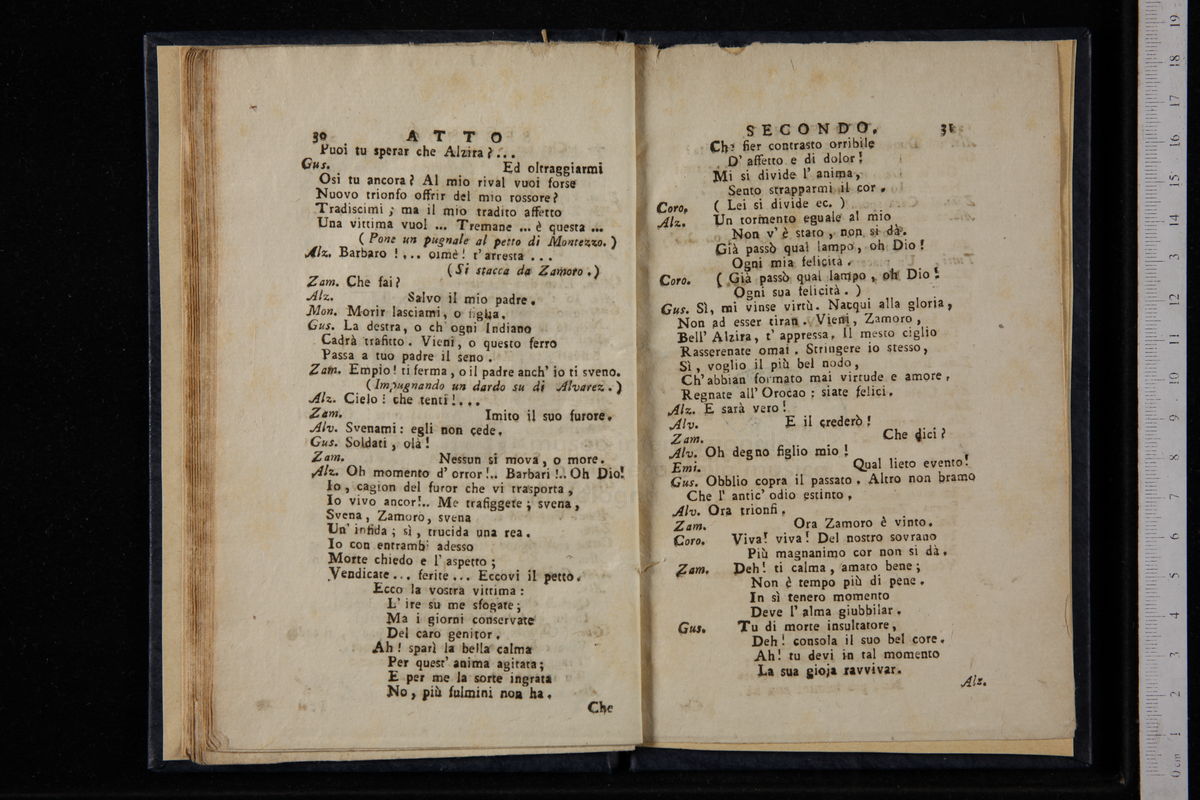 30 ATTO
Puoi tu sperar che Alzira?...
Gus. Ed oltraggiarmi
Osi tu ancora? Al mio rival vuoi forse
Nuovo trionfo offrir del mio rossore?
Tradiscimi; ma il mio tradito affetto
Una vittima vuol ... Tremane ... è questa ...
(Pone un pugnale al petto di Montezzo.)
Alz. Barbaro!... oimè! t'arresta ...
(Si stacca da Zamoro.)
Zam. Che fai?
Alz. Salvo il mio padre.
Mon. Morir lasciami, o figlia.
Gus. La destra, o ch'ogni Indiano
Cadrà trafitto. Vieni, o questo ferro
Passa a tuo padre il seno.
Zam. Empio! ti ferma, o il padre anch'io ti sveno.
(Impugnando un dardo su di Alvarez.)
Alz. Cielo! che tenti!...
Zam. Imito il suo furore.
Alv. Svenami: egli non cede.
Gus. Soldati, olà!
Zam. Nessun si mova, o more.
Alz. Oh momento d'orror!.. Barbari!.. Oh Dio!
Io, cagion del furor che vi trasporta,
Io vivo ancor!.. Me trafiggete; svena,
Svena, Zamoro, svena
Un'infida; sì, trucida una rea.
Io con entrambi adesso
Morte chiedo e l'aspetto;
Vendicate... ferite... Eccovi il petto.
Ecco la vostra vittima:
L'ire su me sfogate;
Ma i giorni conservate
Del caro genitor.
Ah! sparì la bella calma
Per quest'anima agitata;
E per me la sorte ingrata
No, più fulmini non ha.
Che
SECONDO. 31
Che fier contrasto orribile
D'affetto e di dolor!
Mi si divide l'anima,
Sento strapparmi il cor.
Coro. (Lei si divide ec.)
Alz. Un tormento eguale al mio
Non v'è stato, non si dà.
Già passò qual lampo, oh Dio!
Ogni mia felicità.
Coro. (Già passò qual lampo, oh Dio!
Ogni sua felicità.)
Gus. Sì, mi vinse virtù. Nacqui alla gloria,
Non ad esser tiran. Vieni, Zamoro,
Bell'Alzira, t'appressa. Il mesto ciglio
Rasserenate omai. Stringere io stesso,
Sì, voglio il più bel nodo,
Ch'abbian formato mai virtude e amore.
Regnate all'Orocao: siate felici.
Alz. E sarà vero!
Alv. E il crederò!
Zam. Che dici?
Alv. Oh degno figlio mio!
Emi. Qual lieto evento!
Gus. Obblio copra il passato. Altro non bramo
Che l'antic'odio estinto.
Alv. Ora trionfi.
Zam. Ora Zamoro è vinto.
Coro. Viva! viva! Del nostro sovrano
Più magnanimo cor non si dà.
Zam. Deh! ti calma, amato bene;
Non è tempo più di pene.
In sì tenero momento
Deve l'alma giubbilar.
Gus. Tu di morte insultatore,
Deh! consola il suo bel core.
Ah! tu devi in tal momento
La sua gioja ravvivar.
Alz.